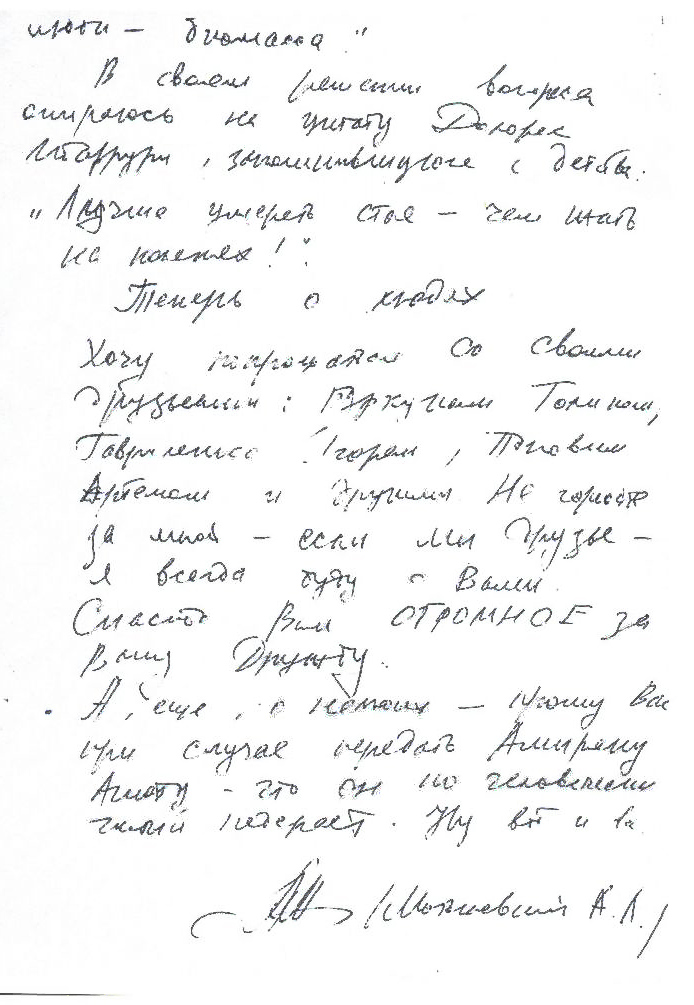 люди — биомасса"
В своем решении вопроса
опираюсь на цитату Долорес
Ибаррури, запомнившуюся с детства.
"Лучше умереть стоя — чем жить
на коленях!".
Теперь о людях
Хочу попрощаться со своими
друзьями: Толиком,
Гавриленко Игорем, Поповым
Артемом и другими Не горюйте
за мной — если мы друзья —
я всегда буду с Вами.
Спасибо Вам ОГРОМНОЕ за
Вашу Дружбу.
А, еще, о — прошу Вас
при случае передать
— что он по человечески
. Ну вот и все
А.Л./